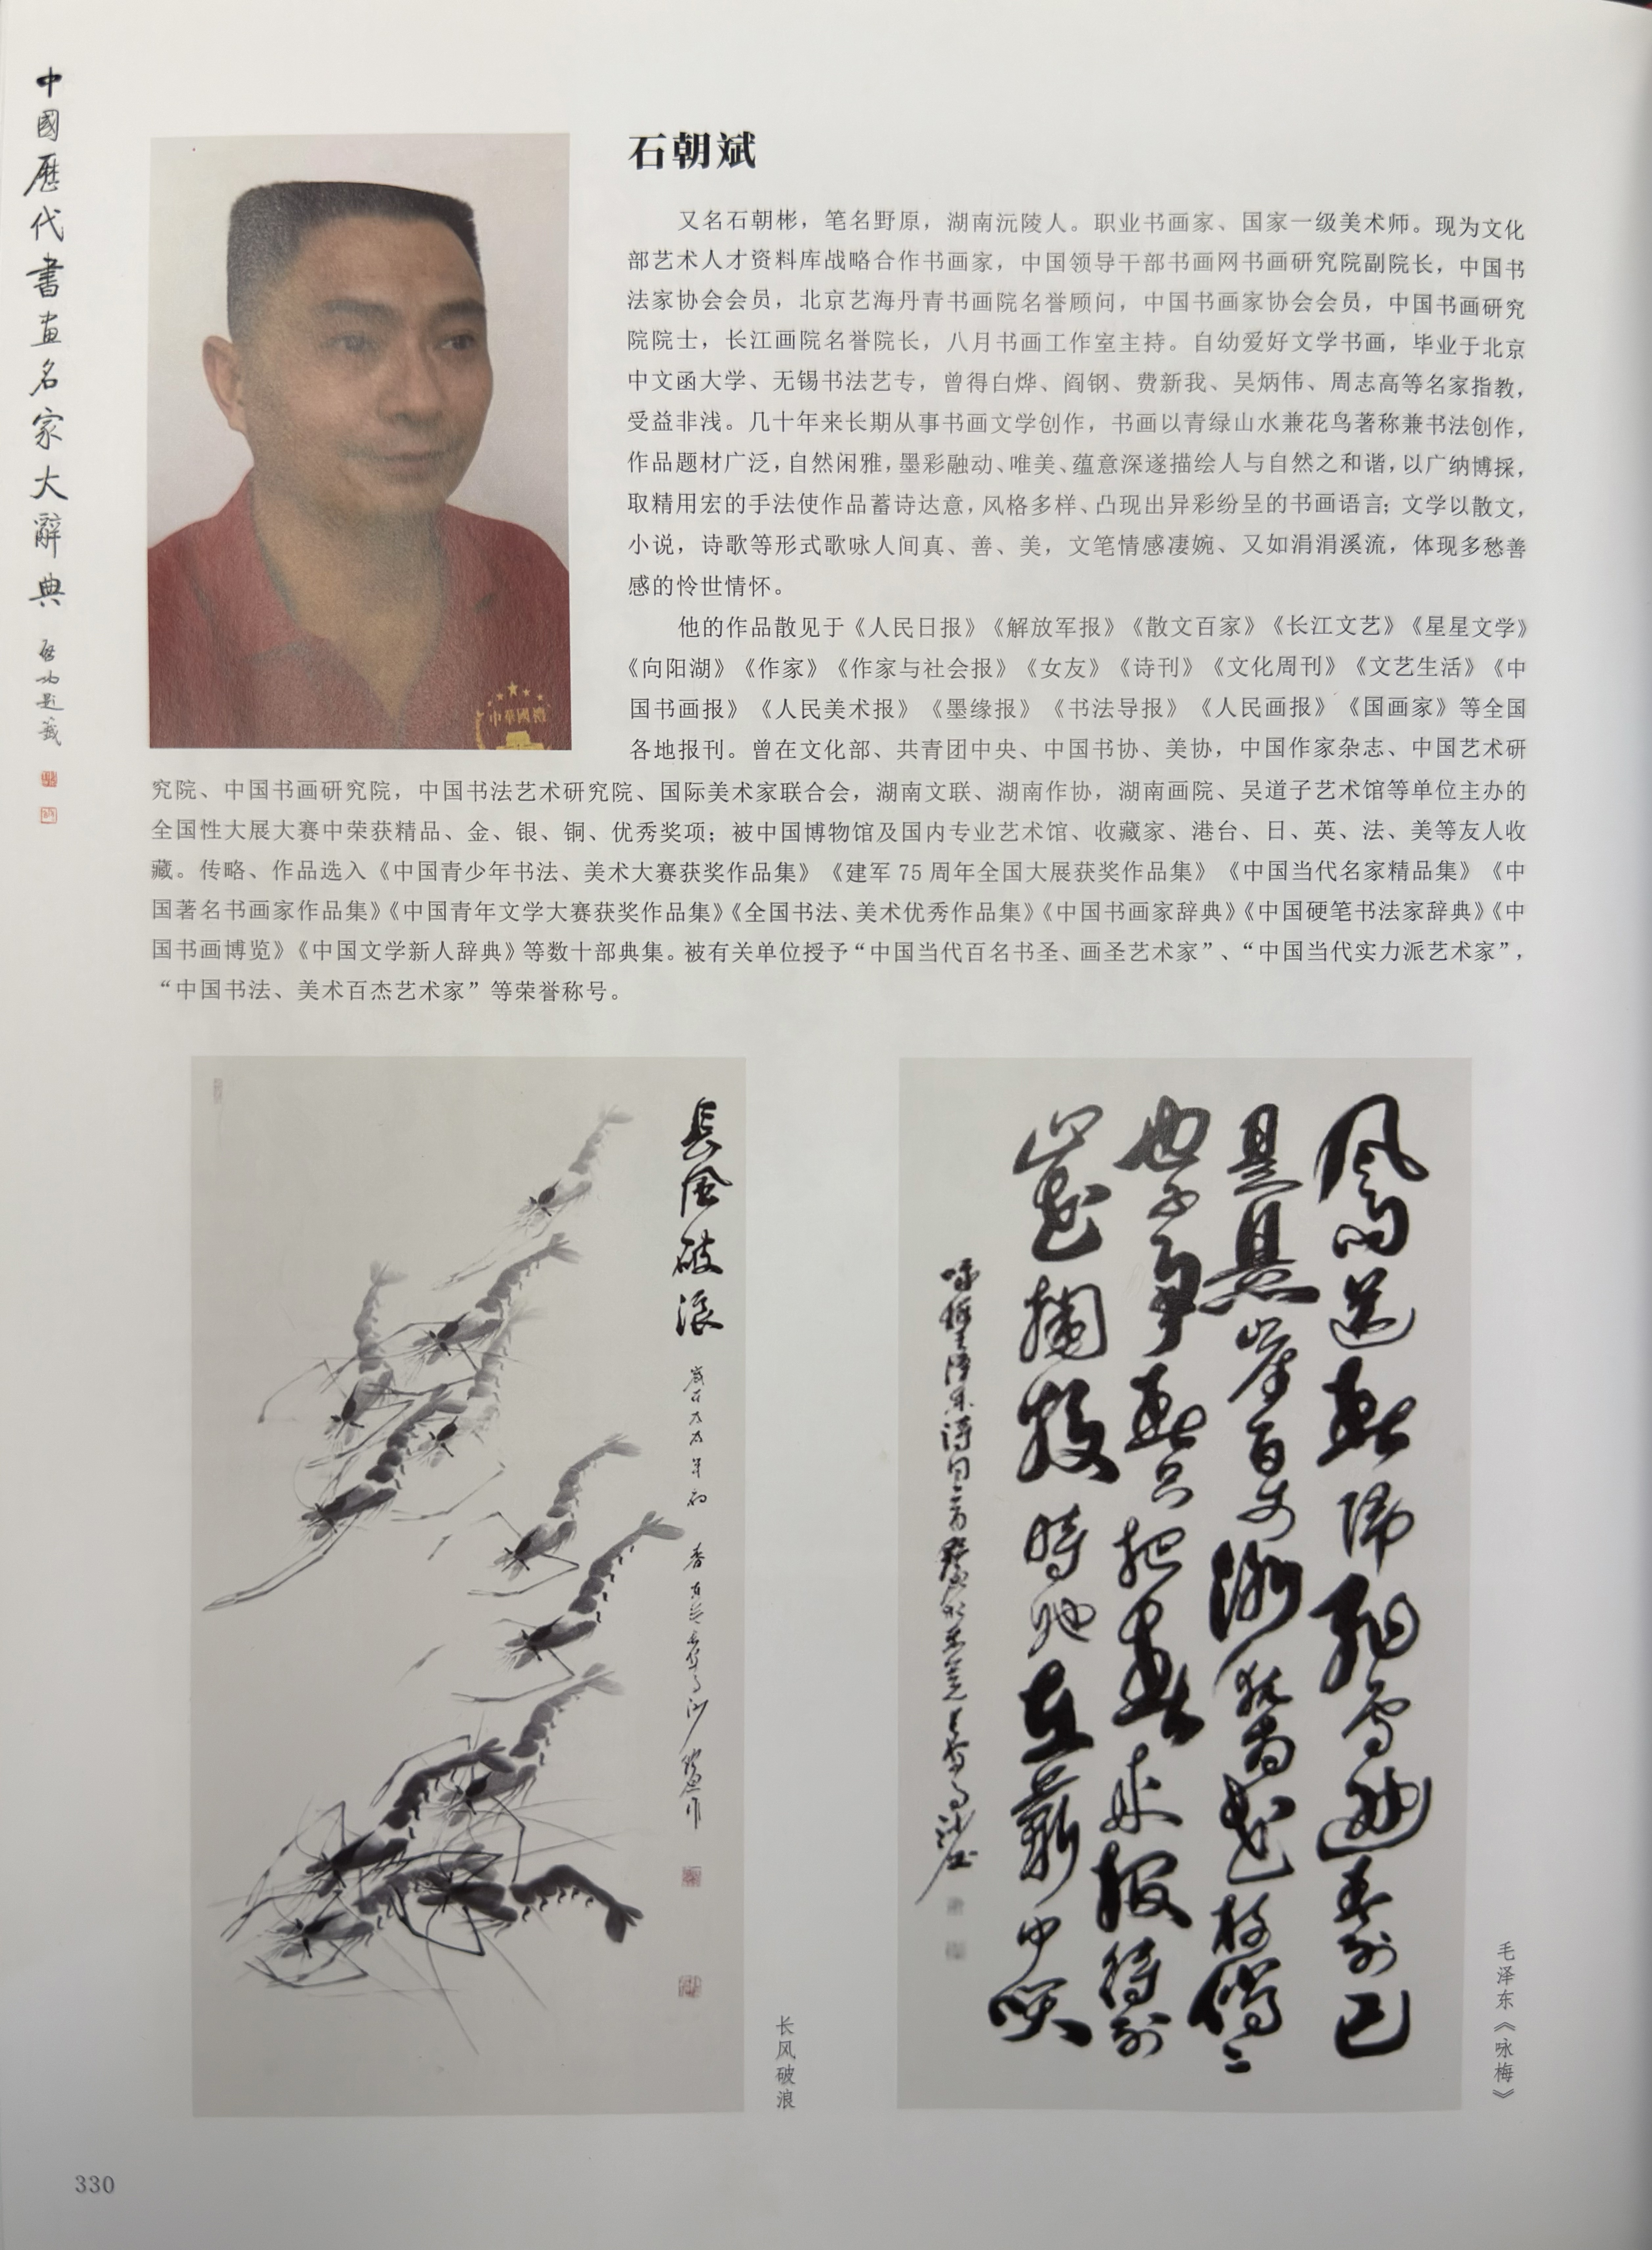 中國歷代書画名家大辭典
启功题籤
石朝斌
又名石朝彬，笔名野原，湖南沅陵人。职业书画家、国家一级美术师。现为文化
部艺术人才资料库战略合作书画家，中国领导干部书画网书画研究院副院长，中国书
法家协会会员，北京艺海丹青书画院名誉顾问，中国书画家协会会员，中国书画研究
院院士，长江画院名誉院长，八月书画工作室主持。自幼爱好文学书画，毕业于北京
中文函大学、无锡书法艺专，曾得白烨、阎钢、费新我、吴炳伟、周志高等名家指教，
受益非浅。几十年来长期从事书画文学创作，书画以青绿山水兼花鸟著称兼书法创作，
作品题材广泛，自然闲雅，墨彩融动、唯美、蕴意深遂描绘人与自然之和谐，以广纳博採，
取精用宏的手法使作品蓄诗达意，风格多样、凸现出异彩纷呈的书画语言；文学以散文，
小说，诗歌等形式歌咏人间真、善、美，文笔情感凄婉、又如涓涓溪流，体现多愁善
感的怜世情怀。
他的作品散见于《人民日报》《解放军报》《散文百家》《长江文艺》《星星文学》
《向阳湖》《作家》《作家与社会报》《女友》《诗刊》《文化周刊》《文艺生活》《中
国书画报》《人民美术报》《墨缘报》《书法导报》《人民画报》《国画家》等全国
各地报刊。曾在文化部、共青团中央、中国书协、美协，中国作家杂志、中国艺术研
究院、中国书画研究院，中国书法艺术研究院、国际美术家联合会，湖南文联、湖南作协，湖南画院、吴道子艺术馆等单位主办的
全国性大展大赛中荣获精品、金、银、铜、优秀奖项；被中国博物馆及国内专业艺术馆、收藏家、港台、日、英、法、美等友人收
藏。传略、作品选入《中国青少年书法、美术大赛获奖作品集》《建军75周年全国大展获奖作品集》《中国当代名家精品集》《中
国著名书画家作品集》《中国青年文学大赛获奖作品集》《全国书法、美术优秀作品集》《中国书画家辞典》《中国硬笔书法家辞典》《中
国书画博览》《中国文学新人辞典》等数十部典集。被有关单位授予“中国当代百名书圣、画圣艺术家”、“中国当代实力派艺术家”，
“中国书法、美术百杰艺术家”等荣誉称号。
中華國禮
長風破浪
长风破浪
風雨送春歸飛雪迎春到已
是懸崖百丈冰犹有花枝俏ニ
也不爭春只把春來報待到
山花爛熳時她在叢中笑
毛泽东《咏梅》
330